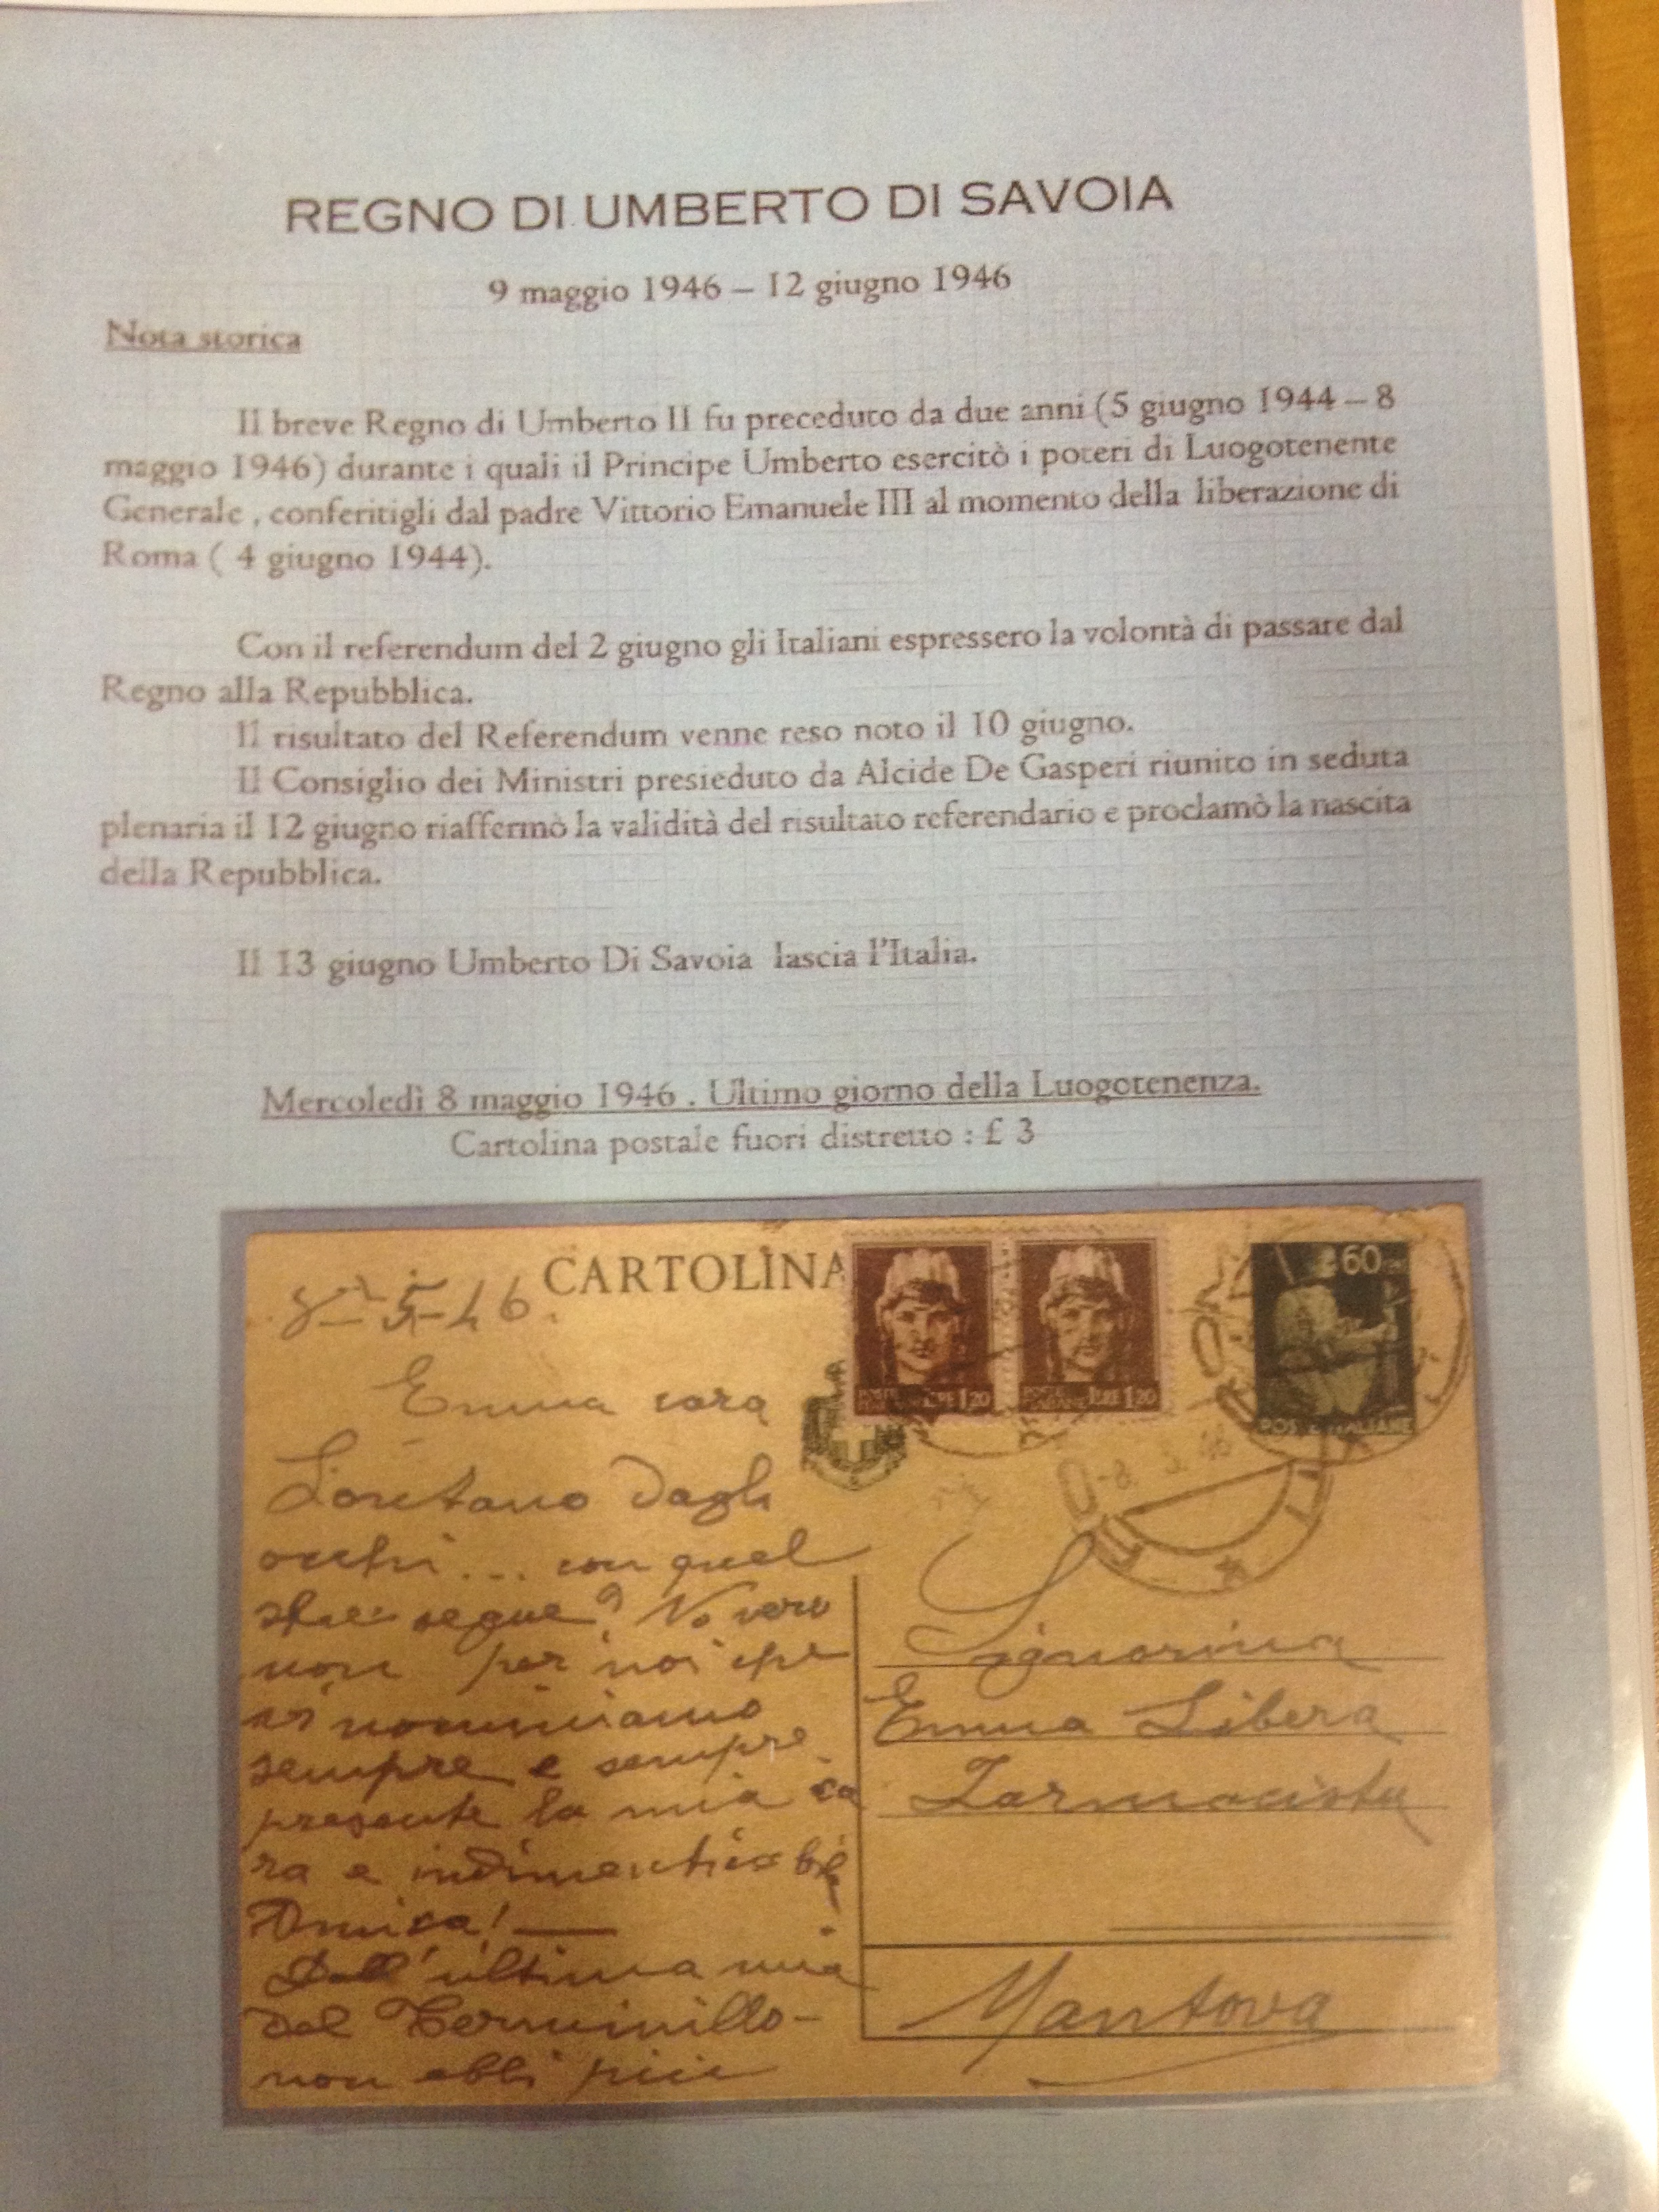 REGNO DI UMBERTO DI SAVOIA
9 maggio 1946 – 12 giugno 1946
Nota storica
Il breve Regno di Umberto II fu preceduto da due anni (5 giugno 1944 – 8
maggio 1946) durante i quali il Principe Umberto esercitò i poteri di Luogotenente
Generale , conferitigli dal padre Vittorio Emanuele III al momento della liberazione di
Roma ( 4 giugno 1944).
Con il referendum del 2 giugno gli Italiani espressero la volontà di passare dal
Regno alla Repubblica.
Il risultato del Referendum venne reso noto il 10 giugno.
Il Consiglio dei Ministri presieduto da Alcide De Gasperi riunito in seduta
plenaria il 12 giugno riaffermò la validità del risultato referendario e proclamò la nascita
della Repubblica.
Il 13 giugno Umberto Di Savoia lascia l'Italia.
Mercoledì 8 maggio 1946 . Ultimo giorno della Luogotenenza.
Cartolina postale fuori distretto : £ 3
CARTOLINA
8-5-46.
LIRE 1,20
LIRE 1,20
60
POSTE ITALIANE
Emma cara
Lontano dagli
occhi... con quel
che segue? No vero
non per noi che
ci nominiamo
sempre e sempre
presente la mia ca
ra e indimenticabile
Amica!
Dall'ultima mia
dal Terminillo-
non ebbi più
-8 5 46
Signorina
Emma Libera
Farmacista
Mantova